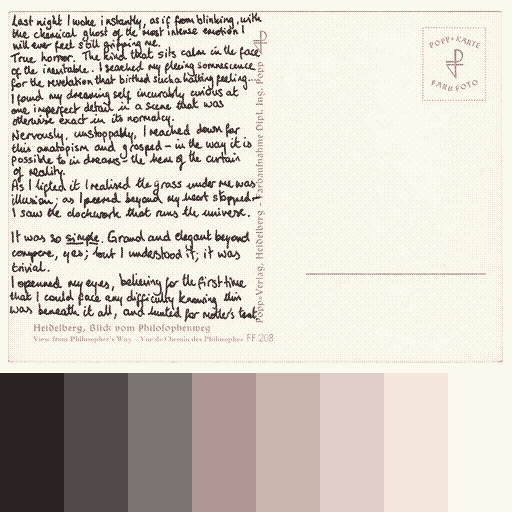 Last night I woke instantly, as if from blinking, with
the chemical ghost of the most intense emotion I
will ever feel still gripping me.
True horror. The kind that sits calm in the face
of the inevitable. I searched my fleeing somnescence
for the revelation that birthed such a halting feeling...
I found my dreaming self incurably curious at
one imperfect detail in a scene that was
otherwise exact in its normalcy.
Nervously, unstoppably, I reached down for
this anatopism and grasped - in the way it is
possible to in dreams - the hem of the curtain
of reality.
As I lifted it I realised the grass under me was
illusion; as I peered beyond my heart stopped -
I saw the clockwork that runs the universe.
It was so simple. Grand and elegant beyond
compare, yes; but I understood it; it was
trivial.
I openned my eyes, believing for the first time
that I could face any difficulty knowing this
was beneath it all, and hunted for mother's teat.
Heidelberg, Blick vom Philosophenweg
View from Philosopher's Way - Vue de Chemin des Philosophes FF 208
Popp-Verlag, Heidelberg - Farbaufnahme Dipl. Ing. Popp
POPP-KARTE
FARBFOTO